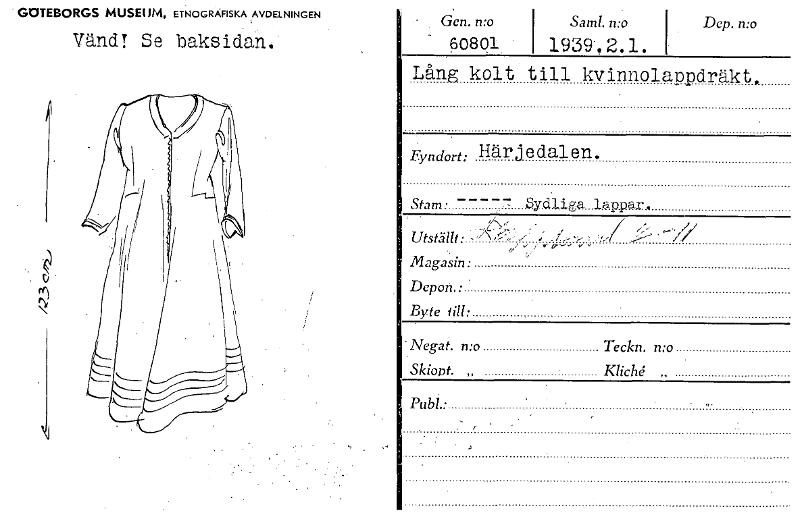 GÖTEBORGS MUSEUM, ETNOGRAFISKA AVDELNINGEN
Vänd! Se baksidan.
123 cm
Gen. n:o
60801
Saml. n:o
1939.2.1.
Dep. n:o
Lång kolt till kvinnolappdräkt.
Fyndort: Härjedalen.
Stam: ----- Sydliga lappar.
Utställt:
Magasin:
Depon.:
Byte till:
Negat. n:o Teckn. n:o
Skiopt. „ Kliché „
Publ.: